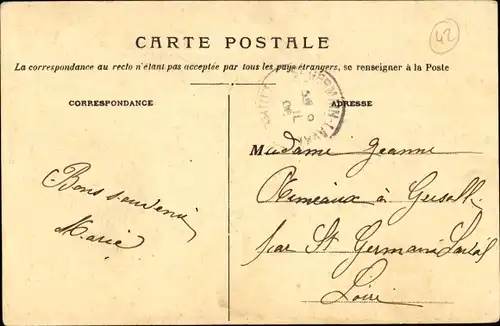 42
CARTE POSTALE
La correspondance au recto n'étant pas acceptée par tous les pays étrangers, se renseigner à la Poste
CORRESPONDANCE
ADRESSE
Bons souvenirs
Marie
Madame Jeanne
à
par St Germain Laval
Loire